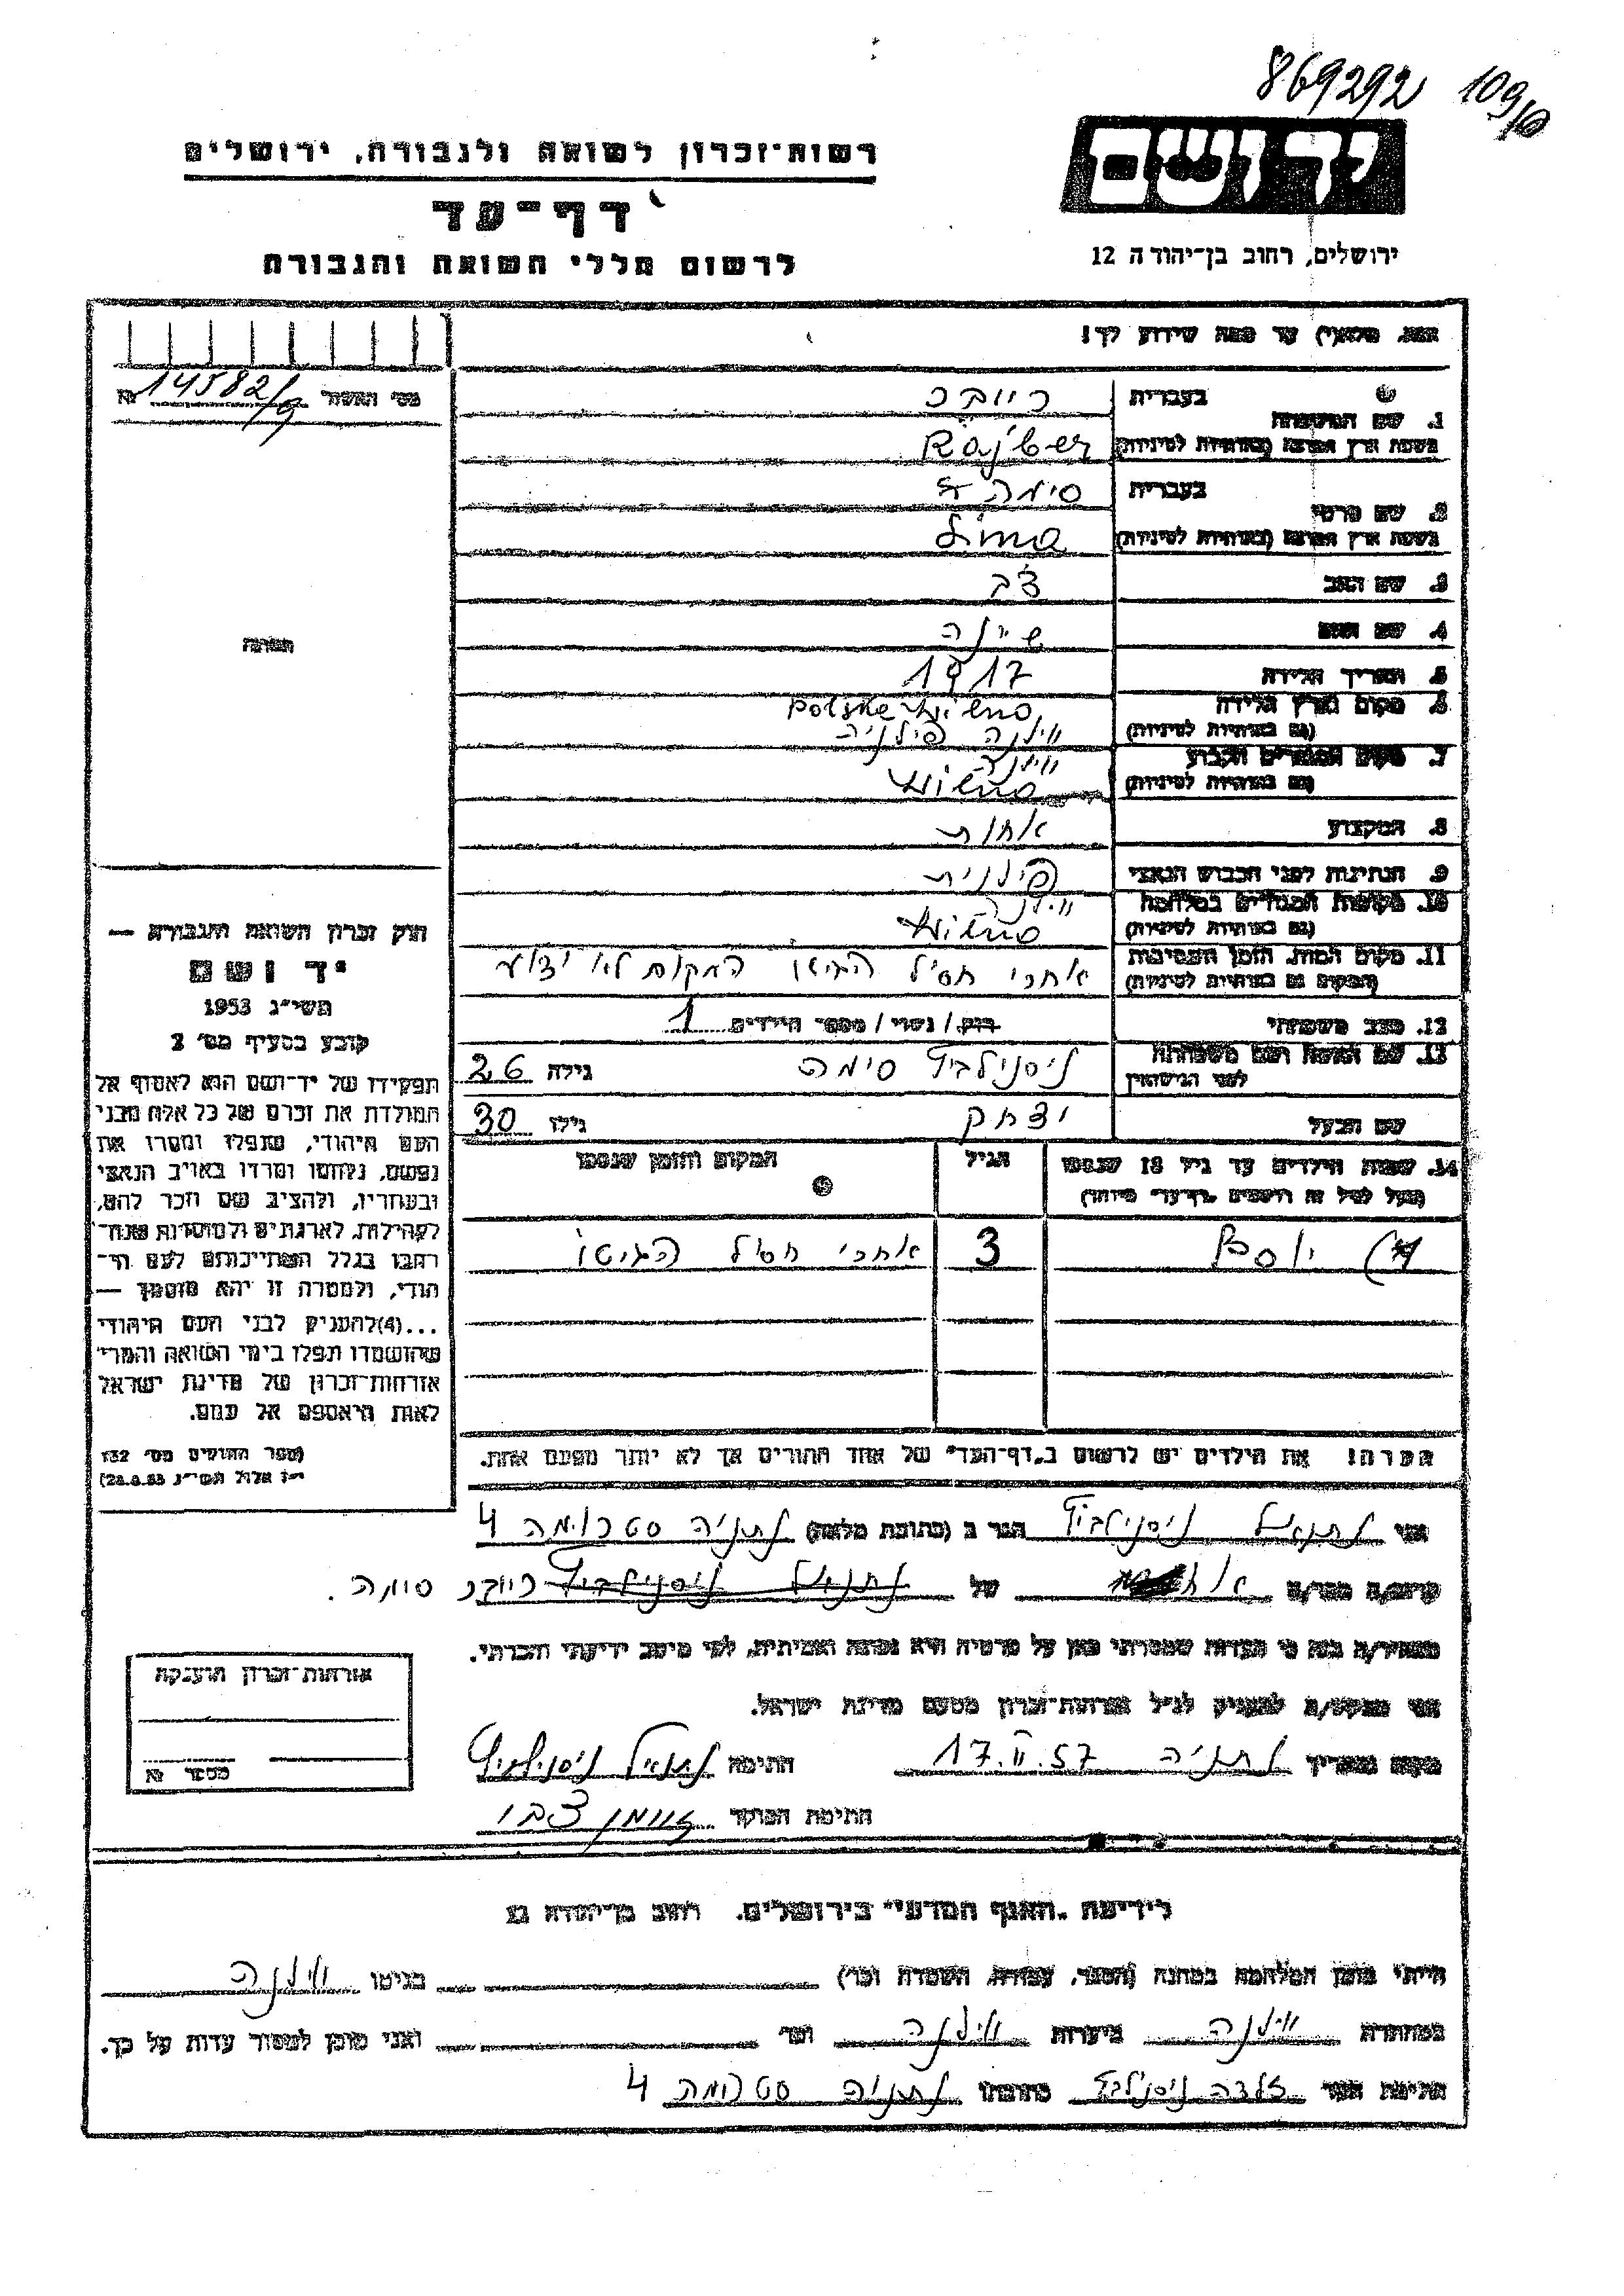 869292 109/6
רשות־זכרון לשואה ולגבורה, ירושלים
ידושם
דף־עד
ירושלים, רחוב בן־יהודה 12
לרשום חללי השואה והגבורה
נא, מלא(י) עד כמה שידוע לך!
מס׳ האשור 14582/g
1. שם המשפחה
בעברית רייבר
בשפת ארץ המוצא (באותיות לטיניות) Rajber
2. שם פרטי
בעברית סימה
בשפת ארץ המוצא (באותיות לטיניות) Sima
3. שם האב צבי
4. שם האם שיינה
5. תאריך הלידה 1917
6. מקום וארץ הלידה
(גם באותיות לטיניות) Wilno Polska
ווילנה פילניה
7. מקום המגורים הקבוע ווילנה
(גם באותיות לטיניות) Wilno
8. המקצוע אחות
9. הנתינות לפני הכבוש הנאצי פילנית
10. מקומות המגורים במלחמה ווילנה
(גם באותיות לטיניות) Wilno
11. מקום המות, הזמן והנסיבות אחרי חסיל הגיטו המקום לא ידוע
(המקום גם באותיות לטיניות)
12. מצב משפחתי רווק/ נשוי/ מספר הילדים 1
13. שם האשה ושם משפחתה
לפני הנישואין ניסנילביץ סימה גילה 26
שם הבעל יצחק גילו 30
14. שמות הילדים עד גיל 18 שנספו הגיל המקום והזמן שנספו
(מעל לגיל זה רושמים „דף־עד״ מיוחד)
יוסף 3 אחרי חסיל הגיטו
הערה! את הילדים יש לרשום ב„דף־העד״ של אחד ההורים אך לא יותר מפעם אחת.
תמונה
חוק זכרון השואה והגבורה —
יד ושם
תשי״ג 1953
קובע בסעיף מס׳ 2
תפקידו של יד־ושם הוא לאסוף אל
המולדת את זכרם של כל אלה מבני
העם היהודי, שנפלו ומסרו את
נפשם, נלחמו ומרדו באויב הנאצי
ובעוזריו, ולהציב שם וזכר להם,
לקהילות, לארגונים ולמוסדות שנח־
רבו בגלל השתייכותם לעם הי־
הודי, ולמטרה זו יהא מוסמך —
...(4)להעניק לבני העם היהודי
שהושמדו ונפלו בימי השואה והמרי
אזרחות־זכרון של מדינת ישראל
לאות היאספם אל עמם.
(ספר החוקים מס׳ 132
י״ז אלול תשי״ג 28.8.53)
אני נתנאל ניסנילביץ הגר ב (כתובת מלאה) נתניה סטרומה 4
קרוב/ה מכר/ה אח של נתנאל ניסנילביץ רייבר סימה.
מצהיר/ה בזה כי העדות שמסרתי כאן על פרטיה היא נכונה ואמיתית, לפי מיטב ידיעתי והכרתי.
אני מבקש/ת להעניק לנ״ל אזרחות־זכרון מטעם מדינת ישראל.
מקום ותאריך נתניה 17.II.57 חתימה נתנאל ניסנילביץ
חתימת הפוקד
אזרחות־זכרון הוענקה
מספר
לידיעת „האגף המדעי״ בירושלים. רחוב בן־יהודה 12
הייתי בזמן המלחמה במחנה (הסגר, עבודה, השמדה וכו׳) בגיטו ווילנה
במחתרת ווילנה ביערות ווילנה ועד ואני מוכן למסור עדות על כך.
חתימת העד זלדה ניסנילביץ כתובתו נתניה סטרומה 4